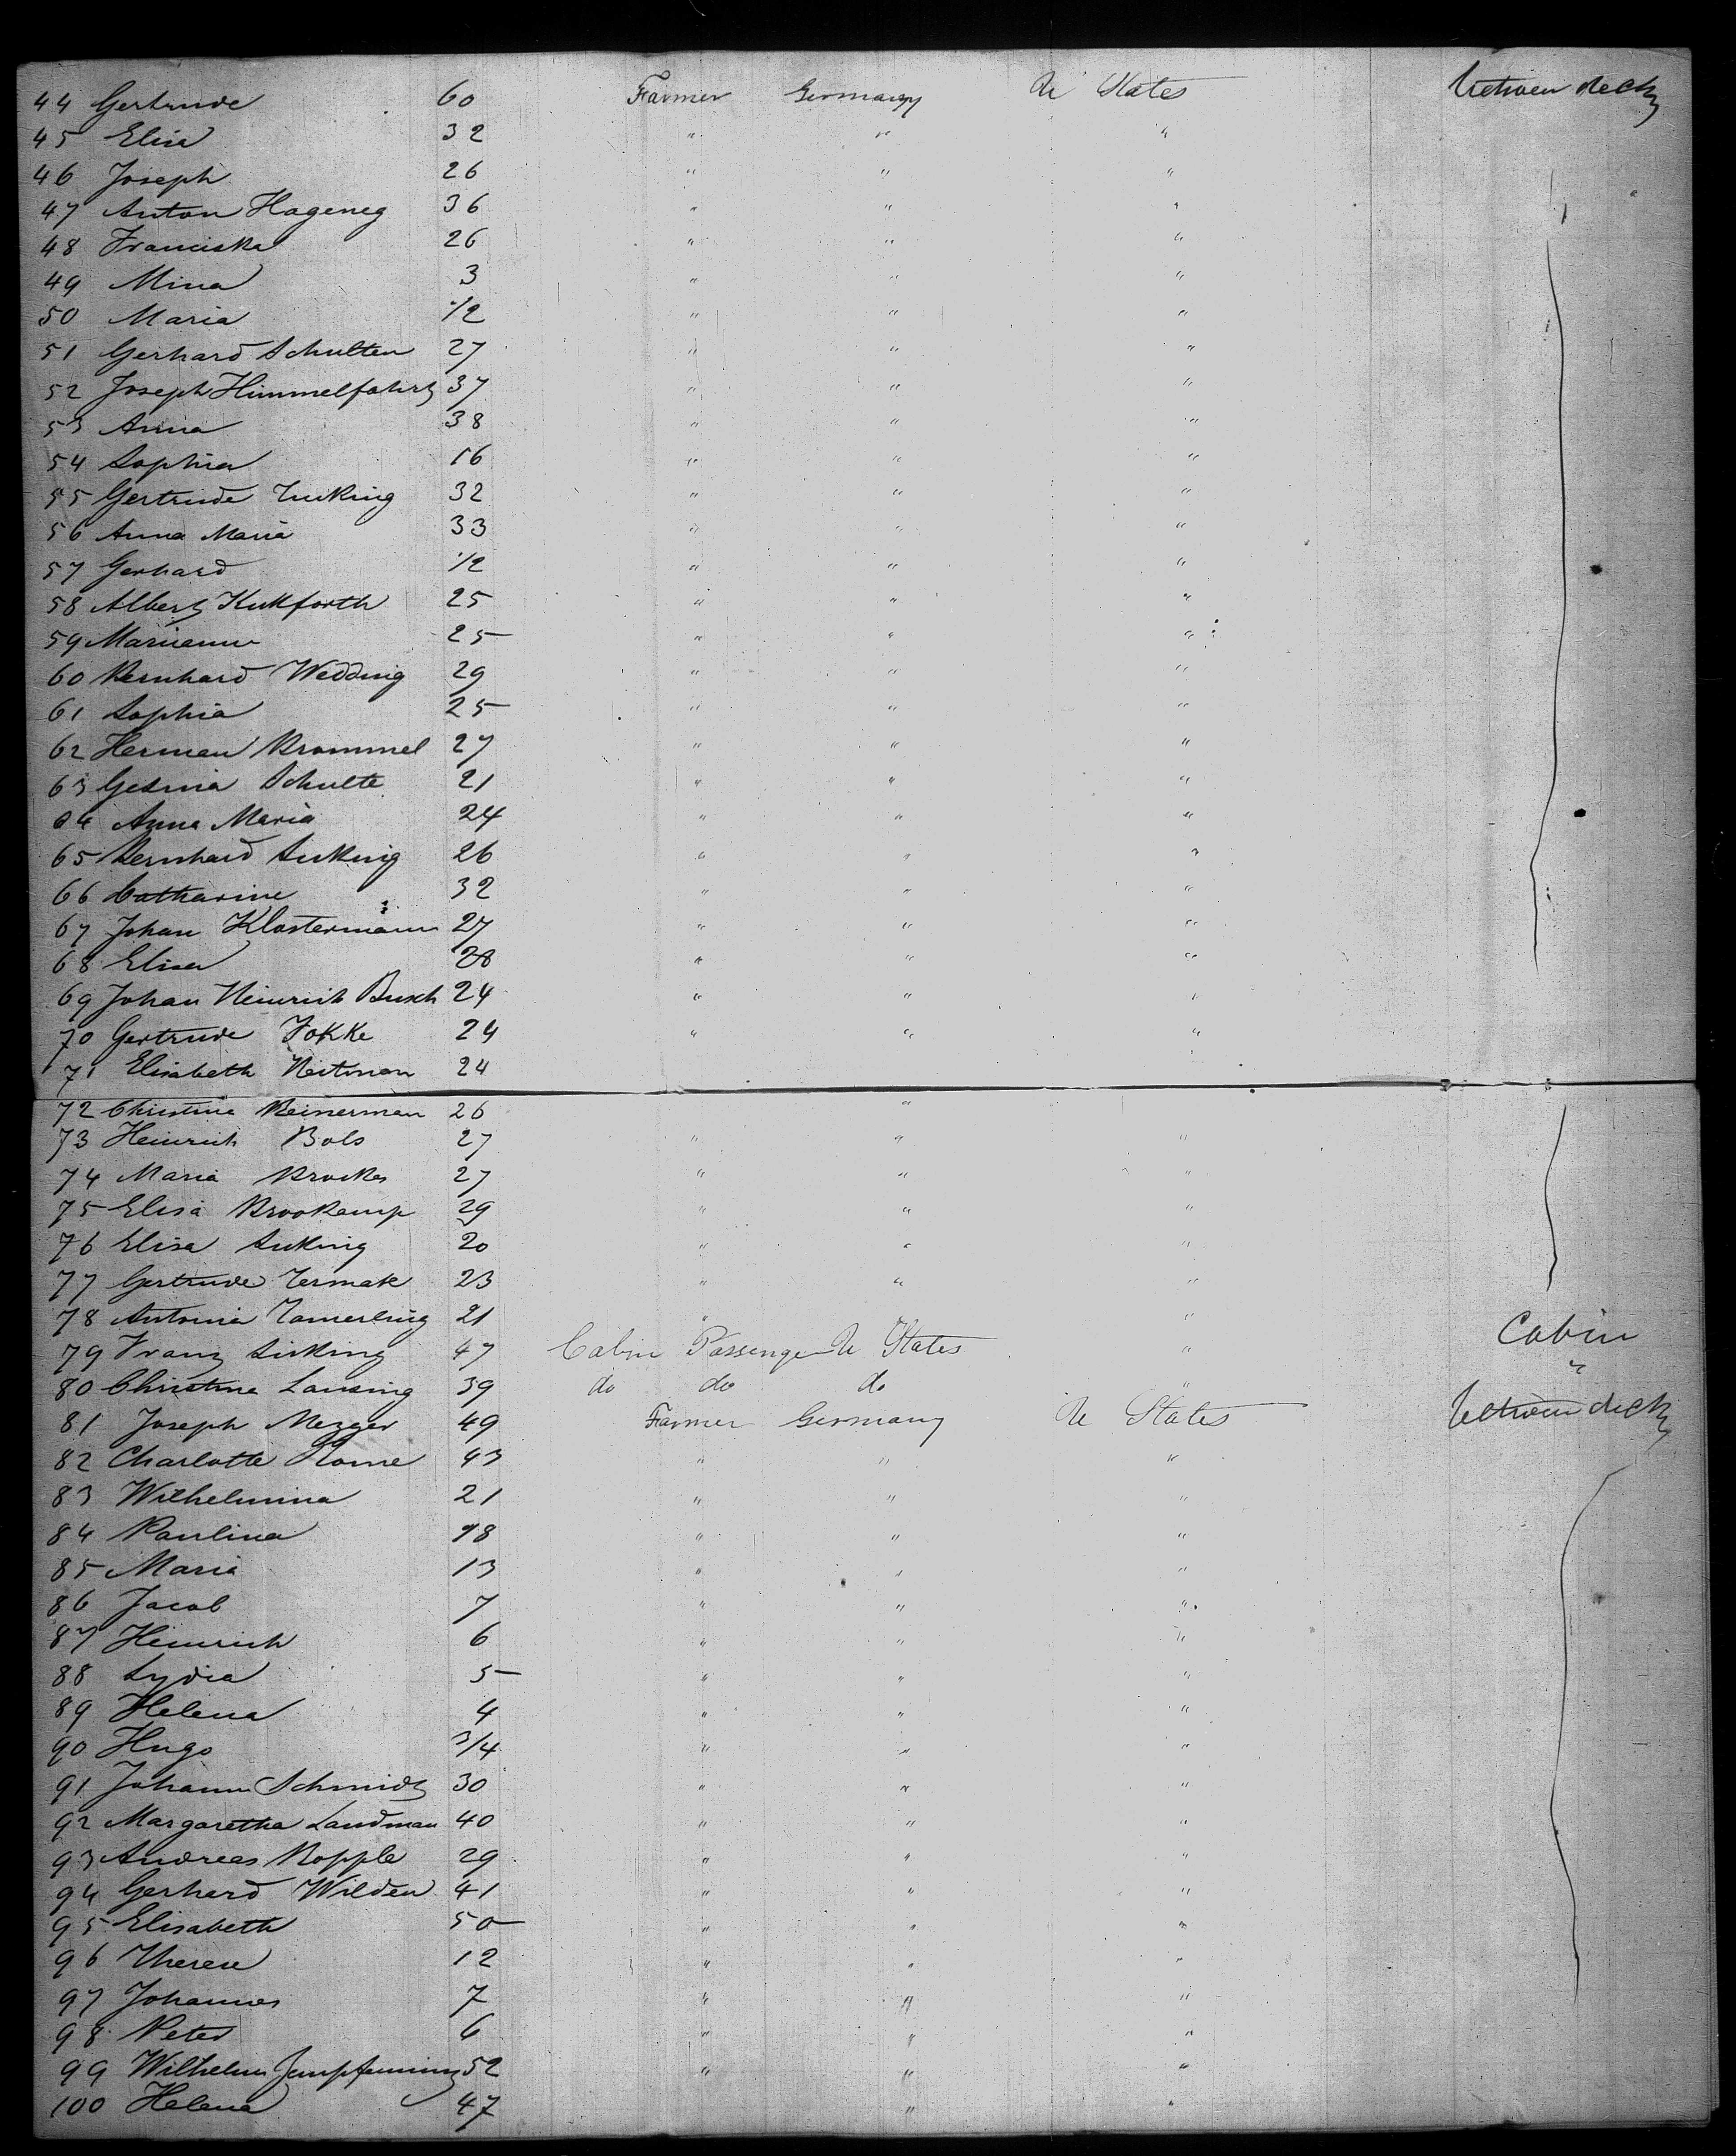 44 Gertrude 60 Farmer Germany U States between deck
45 Elisa 32 " " "
46 Joseph 26 " " "
47 Anton Hageneg 36 " " "
48 Franciska 26 " " "
49 Mina 3 " " "
50 Maria 1/2 " " "
51 Gerhard Schulten 27 " " "
52 Joseph Himmelfahrt 37 " " "
53 Anna 38 " " "
54 Sophia 16 " " "
55 Gertrude 32 " " "
56 Anna Maria 33 " " "
57 Gerhard 1/2 " " "
58 Albert Kukforth 25 " " "
59 Marianne 25 " " "
60 Bernhard Wedding 29 " " "
61 Sophia 25 " " "
62 Herman Brommel 27 " " "
63 Gesina Schulte 21 " " "
64 Anna Maria 24 " " "
65 Bernhard Sicking 26 " " "
66 Catharine 32 " " "
67 Johan Klostermann 27 " " "
68 Elisa 28 " " "
69 Johan Heinrich Busch 24 " " "
70 Gertrude Fokke 24 " " "
71 Elisabeth 24
72 Christina Reinerman 26 "
73 Heinrich Bols 27 " " "
74 Maria 27 " " "
75 Elisa Brookamp 29 " " "
76 Elisa Sicking 20 " " "
77 Gertrude Termak 23 " " "
78 Antonia Tamerling 21 " "
79 Franz Sicking 47 Cabin Passenger U States " Cabin
80 Christina Lansing 39 do do do " "
81 Joseph Mezger 49 Farmer Germany U States between deck
82 Charlotte 43 " " "
83 Wilhelmina 21 " " "
84 Paulina 18 " " "
85 Maria 13 " " "
86 Jacob 7 " " "
87 Heinrich 6 " " "
88 Lydia 5 " " "
89 Helena 4 " " "
90 Hugo 3/4 " " "
91 Johann Schmidt 30 " " "
92 Margaretha Landman 40 " " "
93 Andreas Kopple 29 " " "
94 Gerhard Wilden 41 " " "
95 Elisabeth 50 " " "
96 Therese 12 " " "
97 Johannes 7 " " "
98 Peter 6 " " "
99 Wilhelm 52 " " "
100 Helena 47 " "